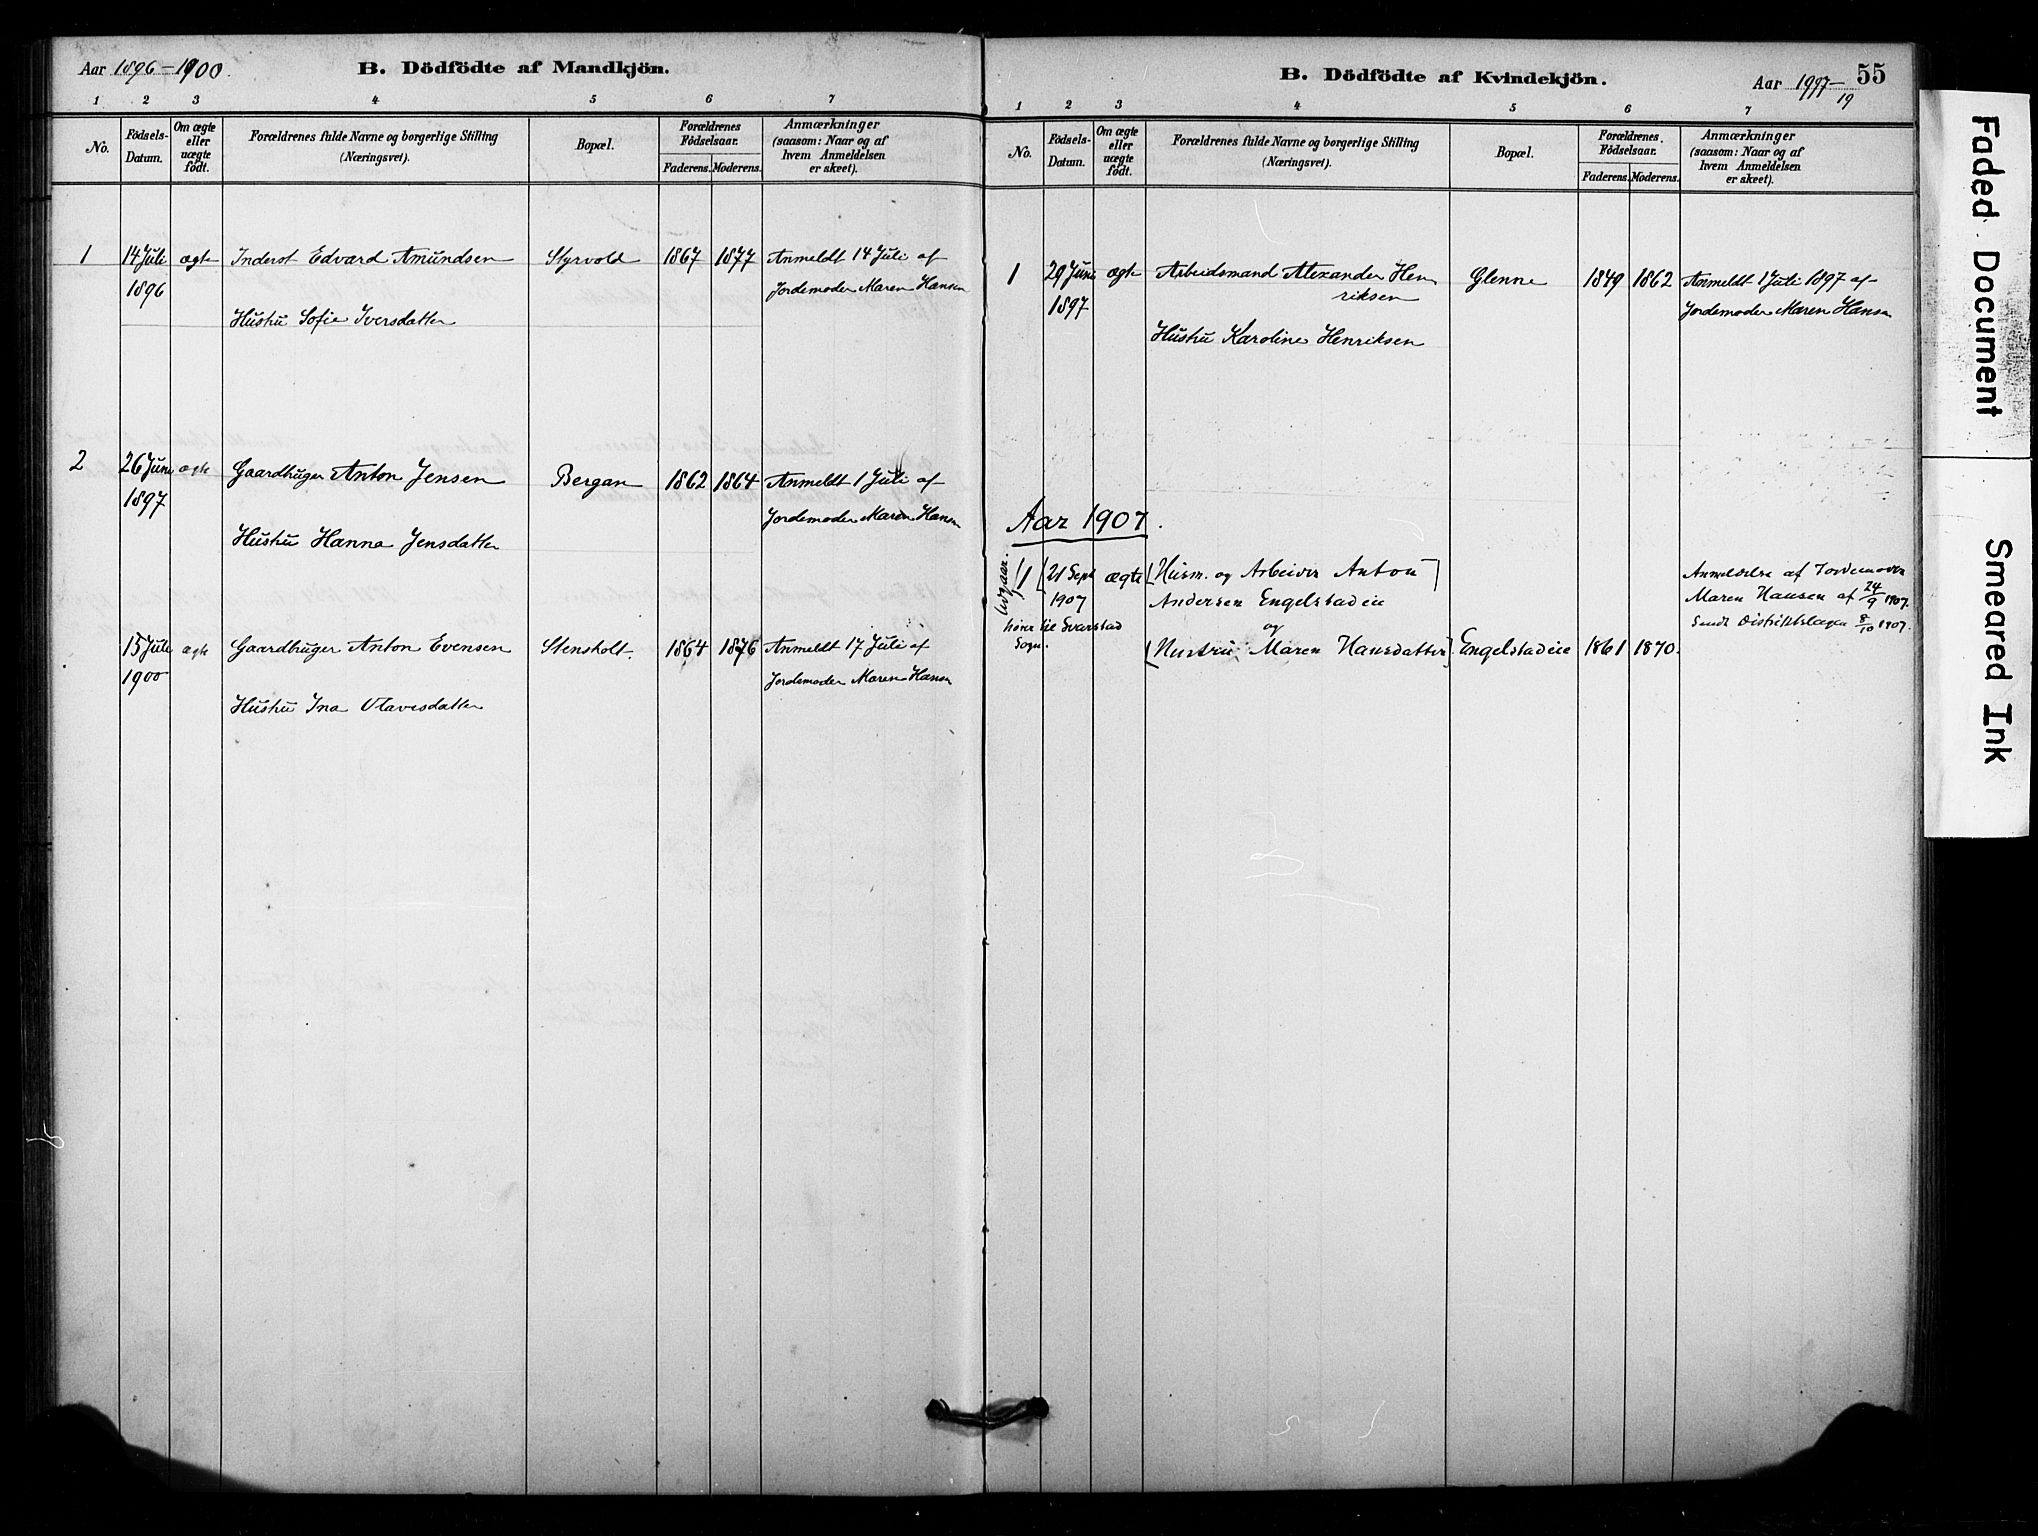 Aar 1896-1900.
B. Dödfödte af Mandkjön.
1 2 3 4 5 6 7
No.
Födsels-Datum.
Om ægte eller uægte födt.
Forældrenes fulde Navne og borgerlige Stilling (Næringsvei).
Bopæl.
Forældrenes Födselsaar.
Faderens. Moderens.
Anmærkninger (saasom: Naar og af hvem Anmeldelsen er skeet).
1 14 Juli ægte Inderst Edvard Amundsen Styrvold 1867 1877 Anmeldt 14 Juli af
1896 Jordemoder Maren Hansen
Hustru Sofie Iversdatter
2 26 Juni ægte Gaardbruger Anton Jensen Bergan 1862 1864 Anmeldt 1 Juli af
1897 Jordemoder Maren Hansen
Hustru Hanna Jensdatter
15 Juli ægte Gaardbruger Anton Evensen Stensholt. 1864 1876 Anmeldt 17 Juli af
1900 Jordemoder Maren Hansen
Hustru Ina Olavesdatter
B. Dödfödte af Kvindekjön.
Aar 1897-19
55
1 2 3 4 5 6 7
No.
Födsels-Datum.
Om ægte eller uægte födt.
Forældrenes fulde Navne og borgerlige Stilling (Næringsvei).
Bopæl.
Forældrenes Födselsaar.
Faderens. Moderens.
Anmærkninger (saasom: Naar og af hvem Anmeldelsen er skeet).
1 29 Juni ægte Arbeidsmand Alexander Hen Glenne 1849 1862 Anmeldt 1 Juli 1897 af
1897 riksen Jordemoder Maren Hansen
Hustru Karoline Henriksen
Aar 1907.
Udgaar.
1 21 Sept ægte Husm. og Arbeider Anton Anmeldelse af Jordemoder
1907 Andersen Engelstadeie Maren Hansen af 24/9 1907.
hører til Svarstad og Sendt Distriktslægen 8/10 1907.
Sogn. Hustru Maren Hansdatter Engelstadeie 1861 1870.
Faded Document
Smeared Ink